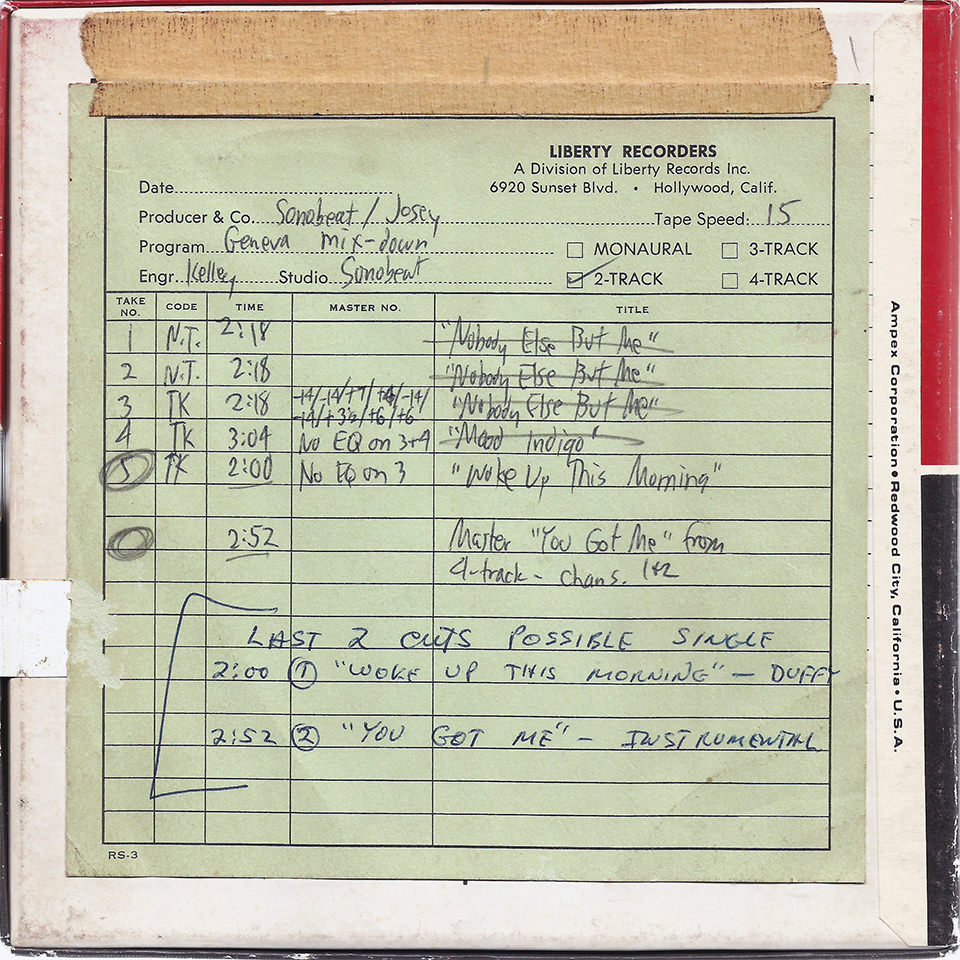 LIBERTY RECORDERS
A Division of Liberty Records Inc.
6920 Sunset Blvd. • Hollywood, Calif.
Date
Producer & Co. Sonobeat / Josey Tape Speed: 15
Program Geneva mix-down MONAURAL 3-TRACK
Engr. Kelley Studio Sonobeat 2-TRACK 4-TRACK
TAKE NO. CODE TIME MASTER NO. TITLE
1 N.T. 2:18 "Nobody Else But Me"
2 N.T. 2:18 "Nobody Else But Me"
3 TK 2:18 -14/-14/+7/+4/-14/ "Nobody Else But Me"
-14/+3½/+6/+6
4 TK 3:04 No EQ on 3+4 "Mood Indigo"
5 TK 2:00 No EQ on 3 "Woke Up This Morning"
2:52 Master "You Got Me" from
4-track - chans. 1+2
LAST 2 CUTS POSSIBLE SINGLE
2:00 1 "WOKE UP THIS MORNING" - DUFFY
2:52 2 "YOU GOT ME" - INSTRUMENTAL
RS-3
Ampex Corporation • Redwood City, California • U.S.A.